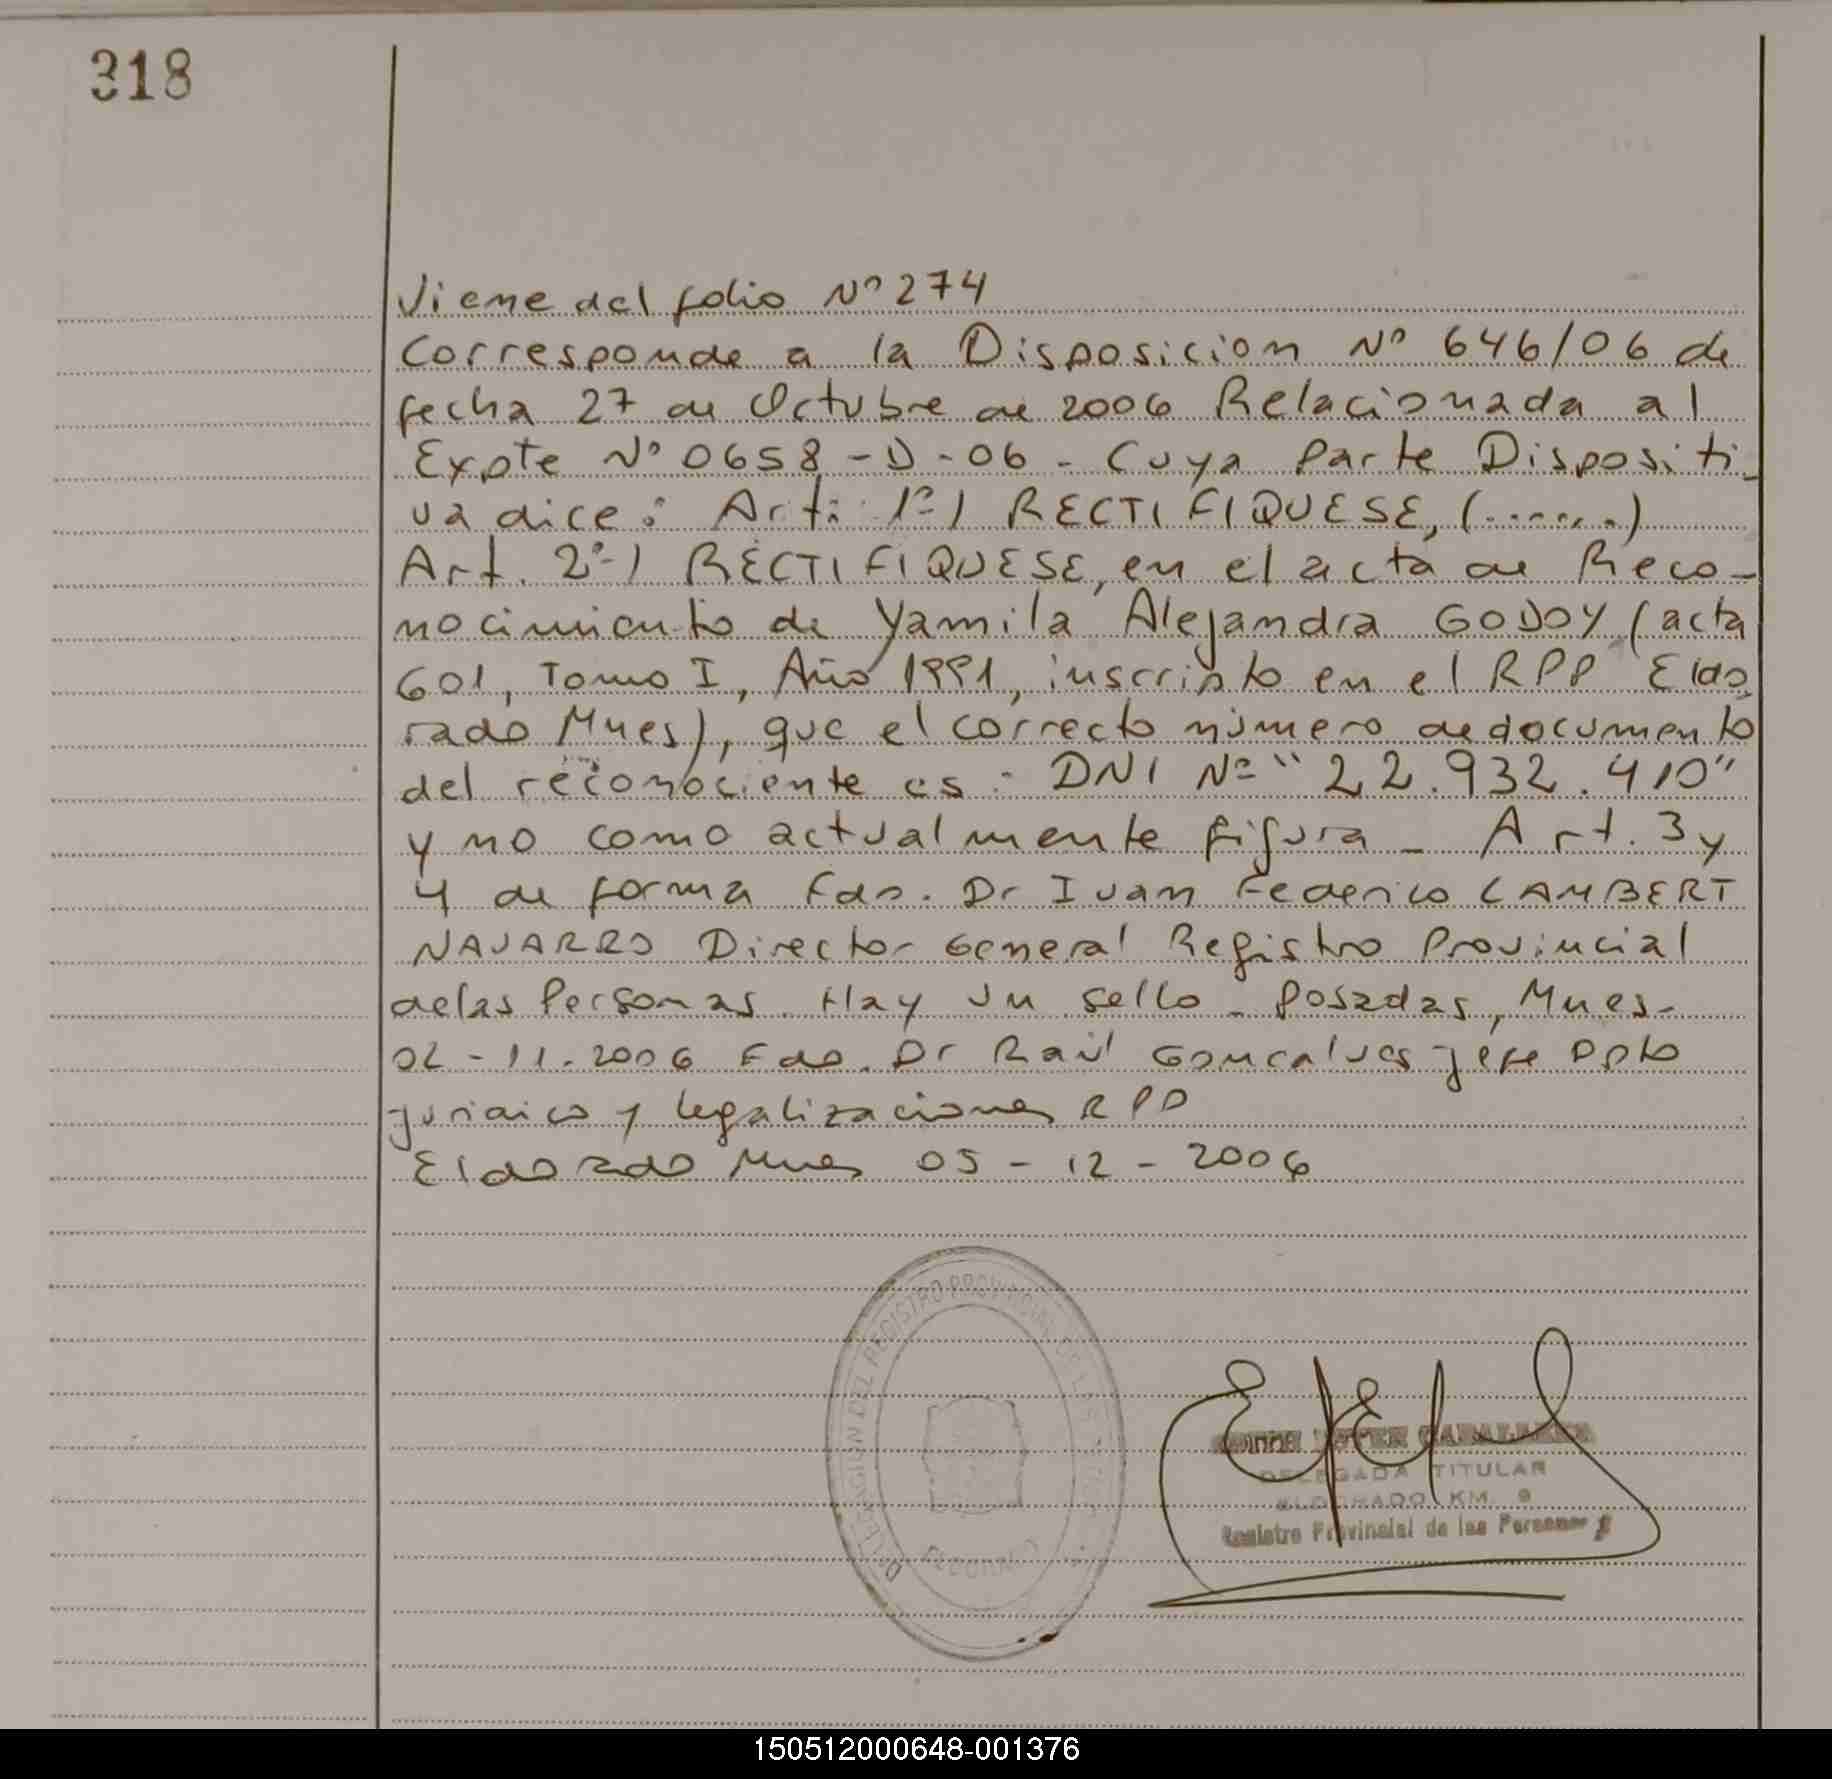 318
Viene del folio Nº 274
Corresponde a la Disposicion Nº 646/06 de
fecha 27 de Octubre de 2006 Relacionada al
Expte Nº 0658-D-06 - Cuya Parte Dispositi-
va dice: Art: 1º) RECTIFIQUESE, (.......)
Art. 2º) RECTIFIQUESE, en el acta de Reco-
nocimiento de Yamila Alejandra GODOY (acta
601, Tomo I, Año 1991, inscripto en el RPP Eldo
rado Mnes), que el correcto número de documento
del reconociente es: DNI Nº "22.932.410"
y no como actualmente figura - Art. 3 y
4 de forma Fdo. Dr Ivan Federico LAMBERT
NAVARRO Director General Registro Provincial
de las Personas. Hay un sello - Posadas, Mnes-
02-11-2006 Fdo. Dr Raúl Goncalves jefe Dpto
juridico y legalizaciones RPP
Eldorado Mnes 05-12-2006
DELEGACION DEL REGISTRO PROVINCIAL DE LAS PERSONAS
ELDORADO
DELEGADA TITULAR
ELDORADO KM. 9
Registro Provincial de las Personas
150512000648-001376